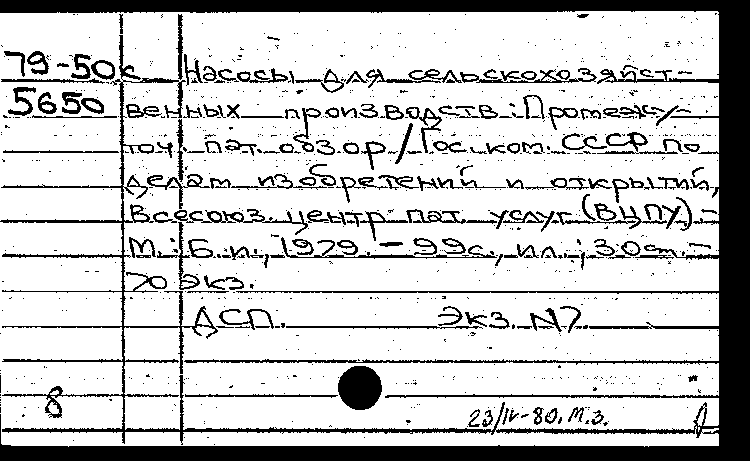 79-50к Насосы для сельскохозяйст-
5650 венных производств: Промежу-
точ. пат. обзор / Гос. ком. СССР по
делам изобретений и открытий,
Всесоюз. центр пат. услуг (ВЦПУ).-
М.: Б.и., 1979. - 99с., ил.; 30см.-
70 экз.
ДСП. Экз. N7.
8
23/IV-80. М.З.